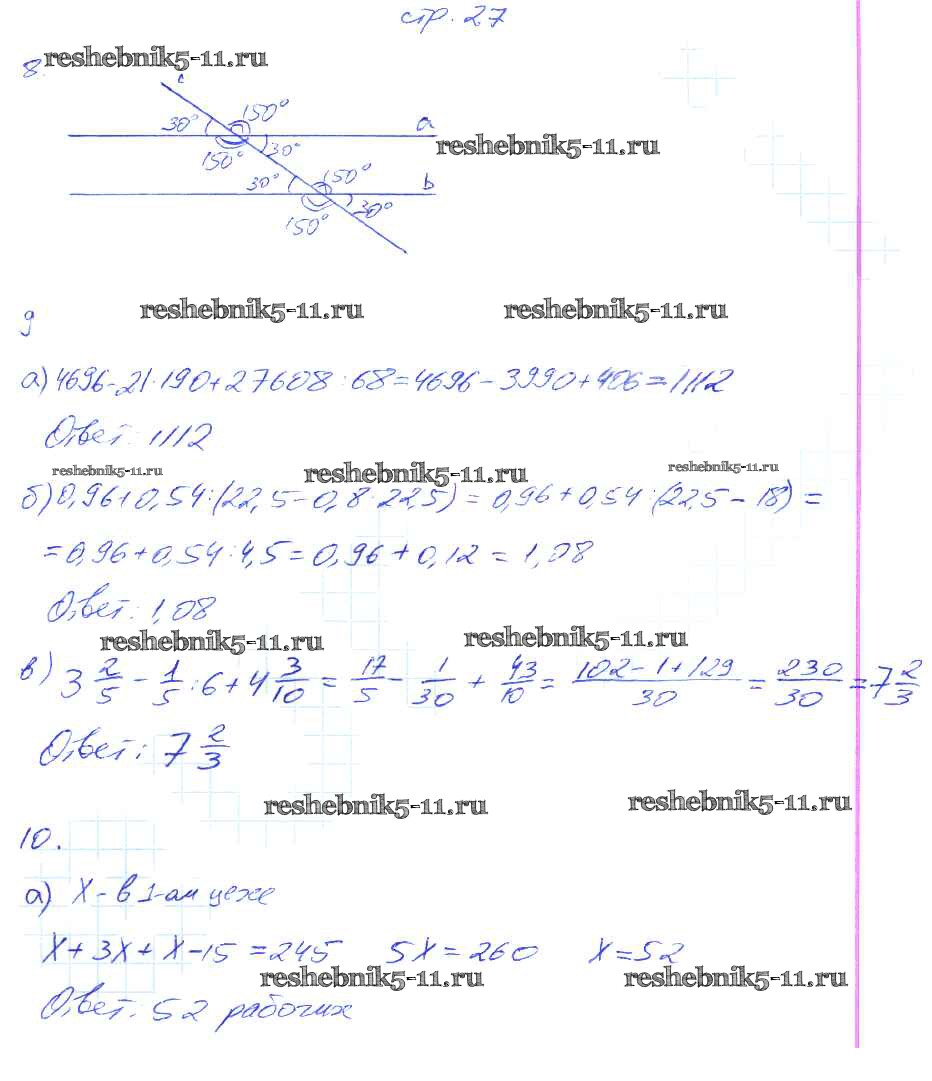 стр. 27
reshebnik5-11.ru
8.
c
30° 150° a
reshebnik5-11.ru
150° 30°
30° 150° b
150° 30°
9
reshebnik5-11.ru reshebnik5-11.ru
а) 4696-21·190+27608:68=4696-3990+406=1112
Ответ: 1112
reshebnik5-11.ru reshebnik5-11.ru reshebnik5-11.ru
б) 0,96+0,54:(22,5-0,8·22,5) = 0,96+0,54:(22,5-18) =
=0,96+0,54:4,5=0,96+0,12=1,08
Ответ: 1,08
reshebnik5-11.ru reshebnik5-11.ru
в) 3 2/5 - 1/5 : 6 + 4 3/10 = 17/5 - 1/30 + 43/10 = (102-1+129)/30 = 230/30 = 7 2/3
Ответ: 7 2/3
reshebnik5-11.ru reshebnik5-11.ru
10.
а) X - в 1-ом цехе
X+3X+X-15=245 5X=260 X=52
reshebnik5-11.ru reshebnik5-11.ru
Ответ: 52 рабочих